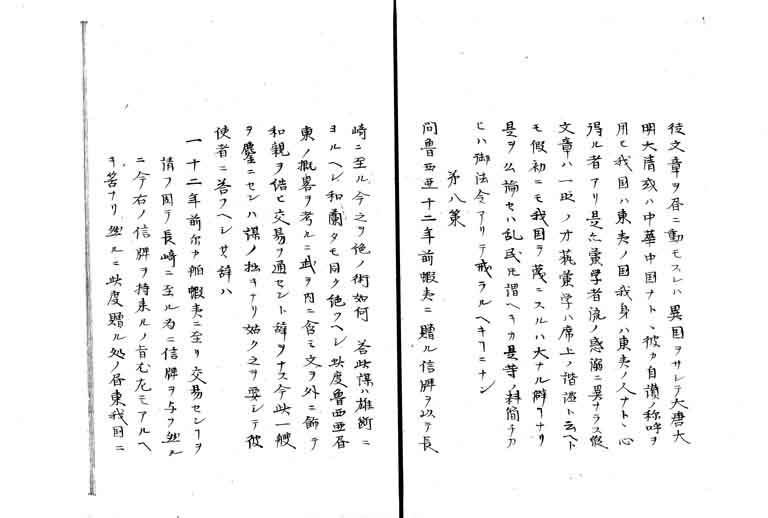 従文章ヲ昏ニ動モスレハ異国ヲサシテ大唐大
明大清或ハ中華中国ナト丶彼カ自讃ノ称呼ヲ
用ヒ我国ハ東夷ノ国我身ハ東夷ノ人ナト丶心
得ル者アリ是亦蘭学者流ノ惑溺ニ異ナラス後
文章ハ一瓧ノ才藝蘭学ハ席上ノ諧謔ト云ヘト
モ假初ニモ我国ヲ蔑ニスルハ大ナル僻ナリ
是ヲ公論セハ乱民ト謂ヘキカ是等ノ料簡チカ
ヒハ御法令アリテ戒ラルヘキニナン
第八策
問魯西亜十二年前蝦夷ニ贈ル信牌ヲ以テ長
崎ニ至ル今之ヲ絶ノ術如何 答此謀ハ雄断ニ
ヨルヘシ和蘭タモ同ク絶フヘシ此度魯西亜昏
東ノ概畧ヲ考ルニ武ヲ内ニ含ミ文ヲ外ニ飾テ
和親ヲ結ヒ交易ヲ通セント辞ヲナス今此一艘
ヲ鏖ニセンハ謀ノ拙キナリ姑ク之ヲ要シテ彼
使者ニ答フヘシ其辞ハ
一十二年前尓カ舶蝦夷ニ至リ交易センヿヲ
請フ因テ長崎ニ至ル為ニ信牌ヲ与フ然ル
ニ今右ノ信牌ヲ持来ルノ旨尤左モアルヘ
キ筈ナリ然ルニ此度贈ル処ノ昏東我国ニ